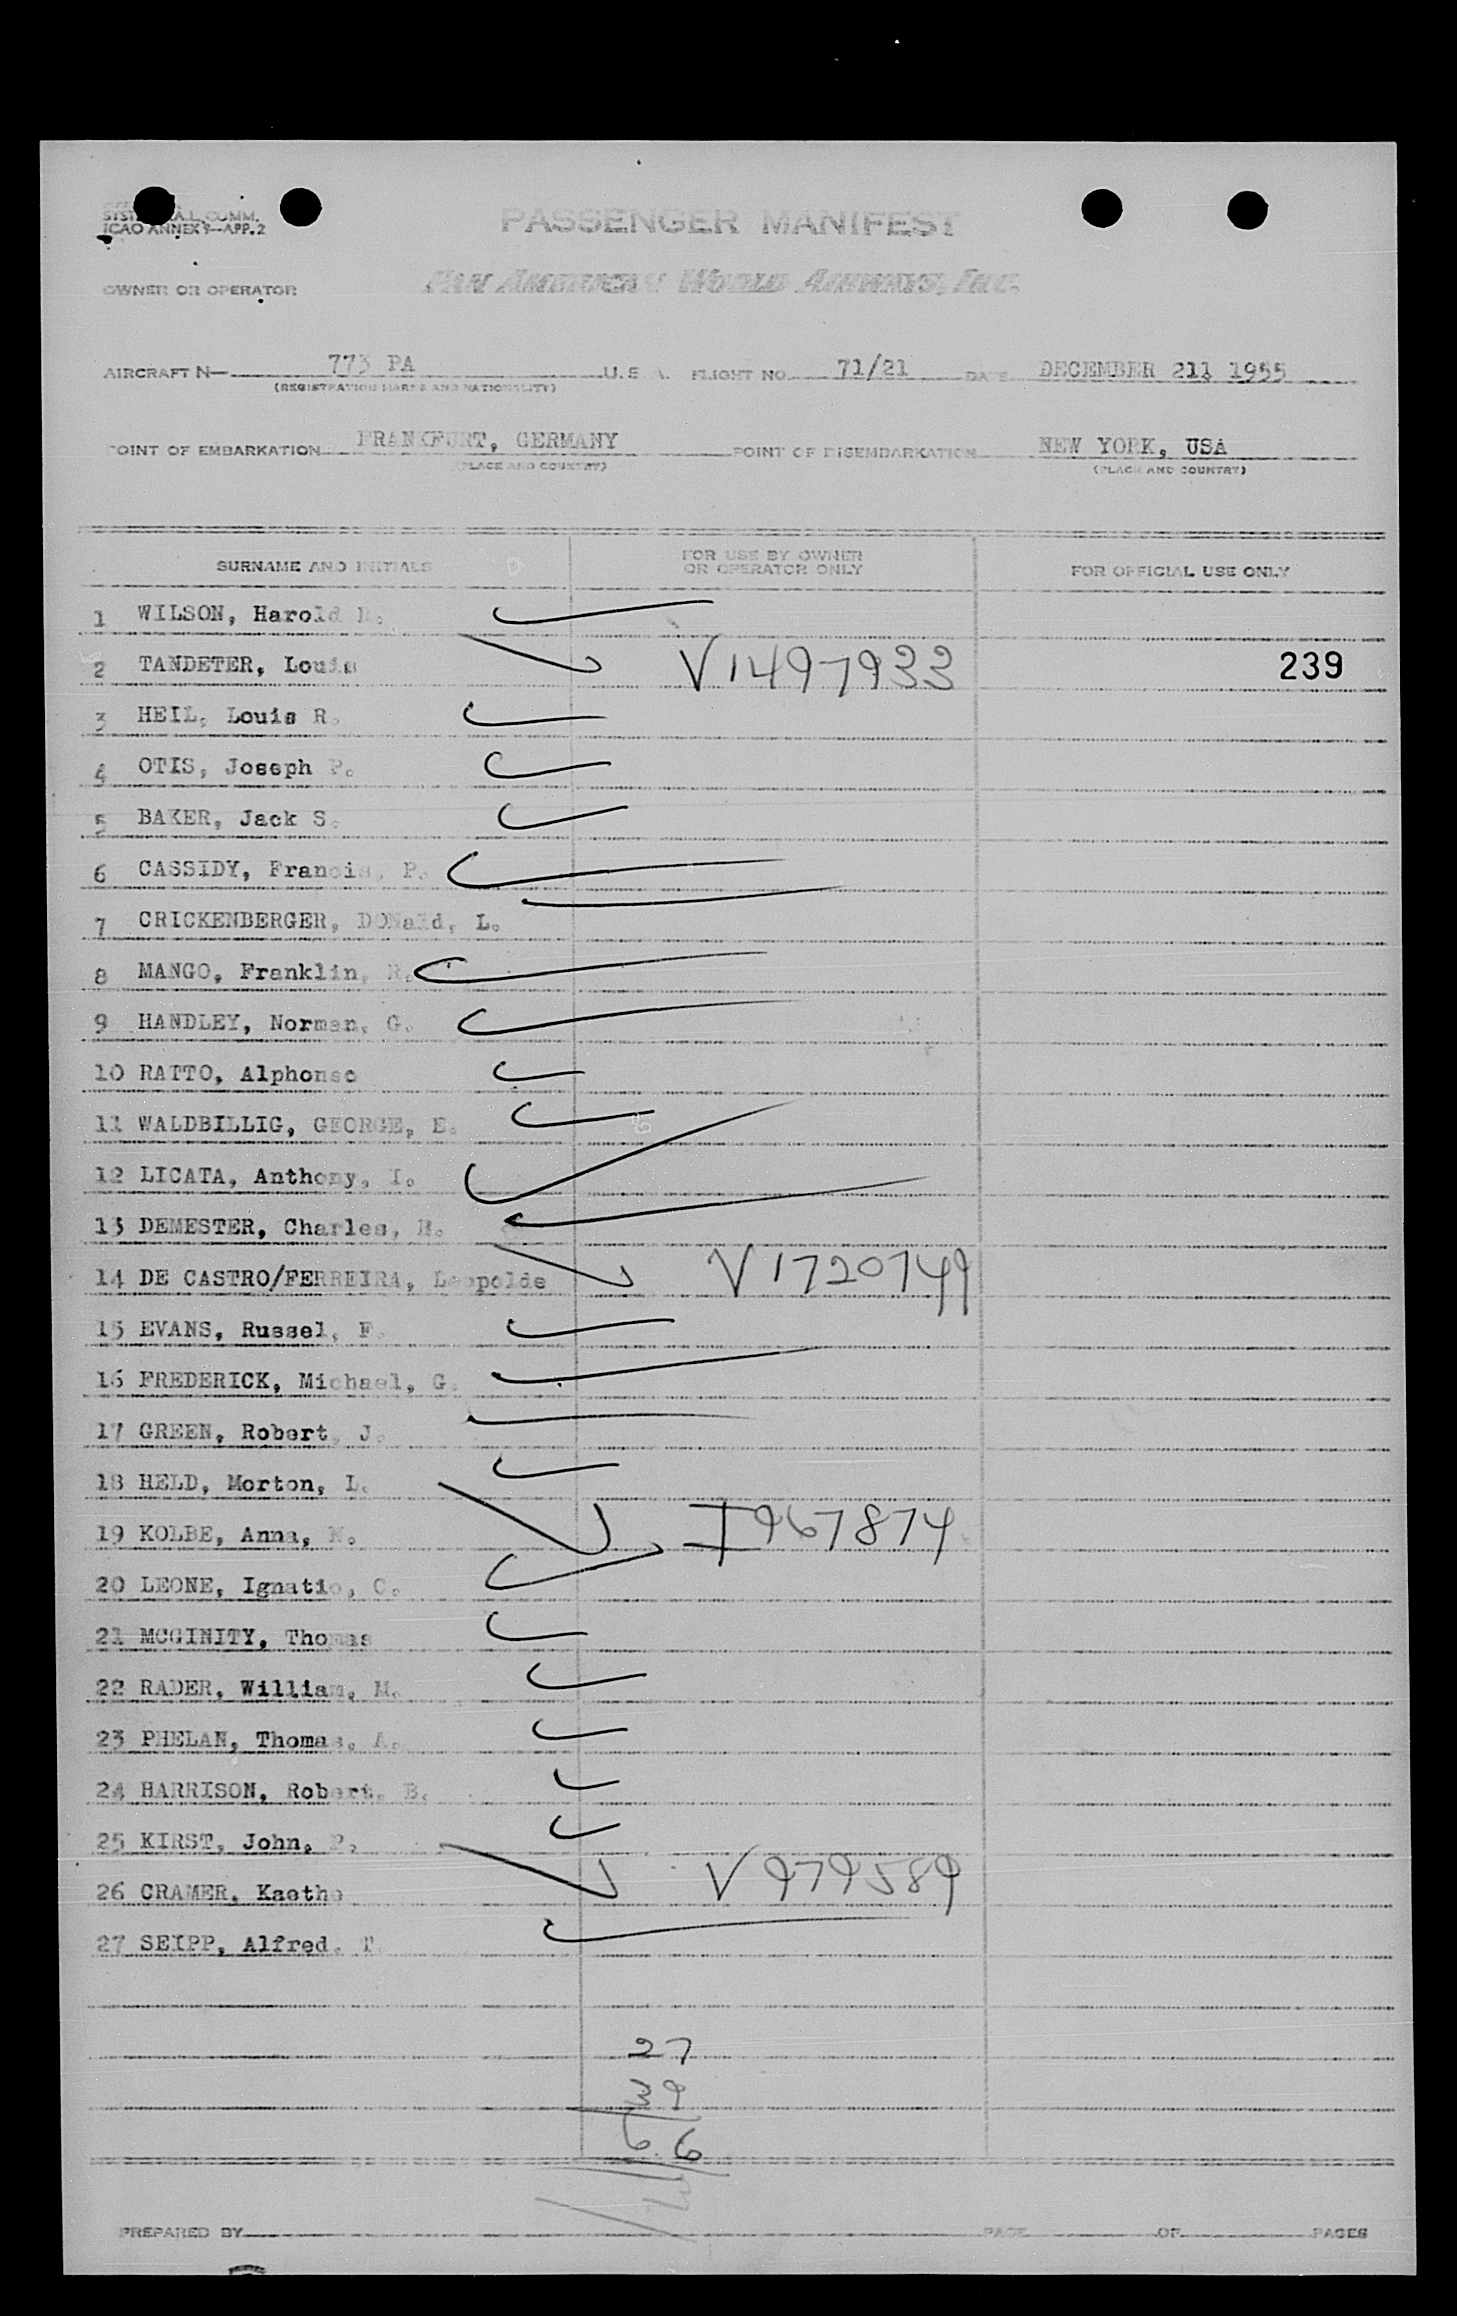 SYST A.L. COMM.
ICAO ANNEX 9—APP. 2
PASSENGER MANIFEST
OWNER OR OPERATOR
PAN AMERICAN WORLD AIRWAYS, INC.
AIRCRAFT N— 773 PA U.S.A. FLIGHT NO. 71/21 DATE DECEMBER 211 1955
(REGISTRATION MARKS AND NATIONALITY)
POINT OF EMBARKATION FRANKFURT, GERMANY POINT OF DISEMBARKATION NEW YORK, USA
(PLACE AND COUNTRY) (PLACE AND COUNTRY)
SURNAME AND INITIALS FOR USE BY OWNER OR OPERATOR ONLY FOR OFFICIAL USE ONLY
1 WILSON, Harold
2 TANDETER, Louis V1497933 239
3 HEIL, Louis R.
4 OTIS, Joseph P.
5 BAKER, Jack S.
6 CASSIDY, Francis, P.
7 CRICKENBERGER, DONald, L.
8 MANGO, Franklin, R.
9 HANDLEY, Norman, G.
10 RATTO, Alphonso
11 WALDBILLIG, GEORGE, E.
12 LICATA, Anthony, I.
13 DEMESTER, Charles, R.
14 DE CASTRO/FERREIRA, Leopolde V1720749
15 EVANS, Russel, F.
16 FREDERICK, Michael, G.
17 GREEN, Robert, J.
18 HELD, Morton, L.
19 KOLBE, Anna, I967874
20 LEONE, Ignatio, C.
21 MCGINITY, Thomas
22 RADER, William, M.
23 PHELAN, Thomas, A.
24 HARRISON, Robert, B.
25 KIRST, John, P.
26 CRAMER, Kaethe V979589
27 SEIPP, Alfred, T.
27
39
66
PREPARED BY PAGE OF PAGES